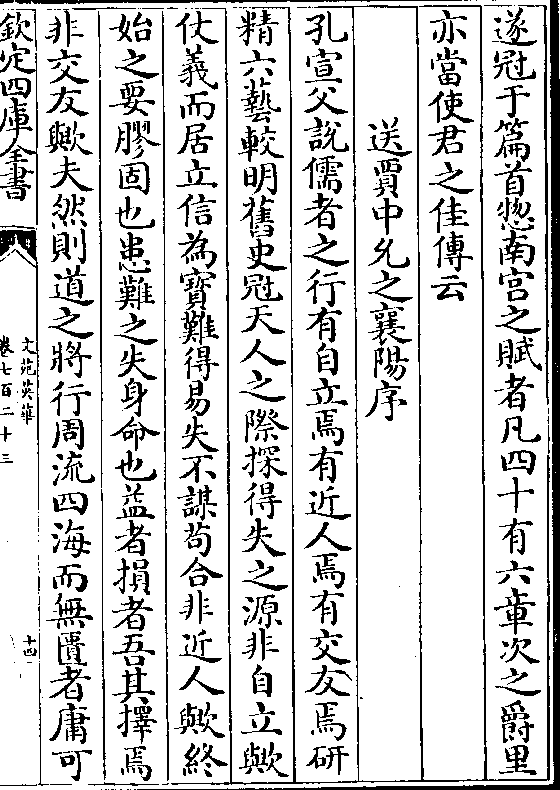 遂冠于篇首惣南宫之賦者凡四十有六章次之爵里
亦當使君之佳傳云
送賈中允之襄陽序
孔宣父説儒者之行有自立焉有近人焉有交友焉研
精六藝較明舊史冠天人之際探得失之源非自立歟
仗義而居立信為寳難得易失不謀苟合非近人歟終
始之要膠固也患難之失身命也益者損者吾其擇焉
非交友歟夫然則道之將行周流四海而無匱者庸可
欽定四庫全書
文苑英華
卷七百二十三
十四